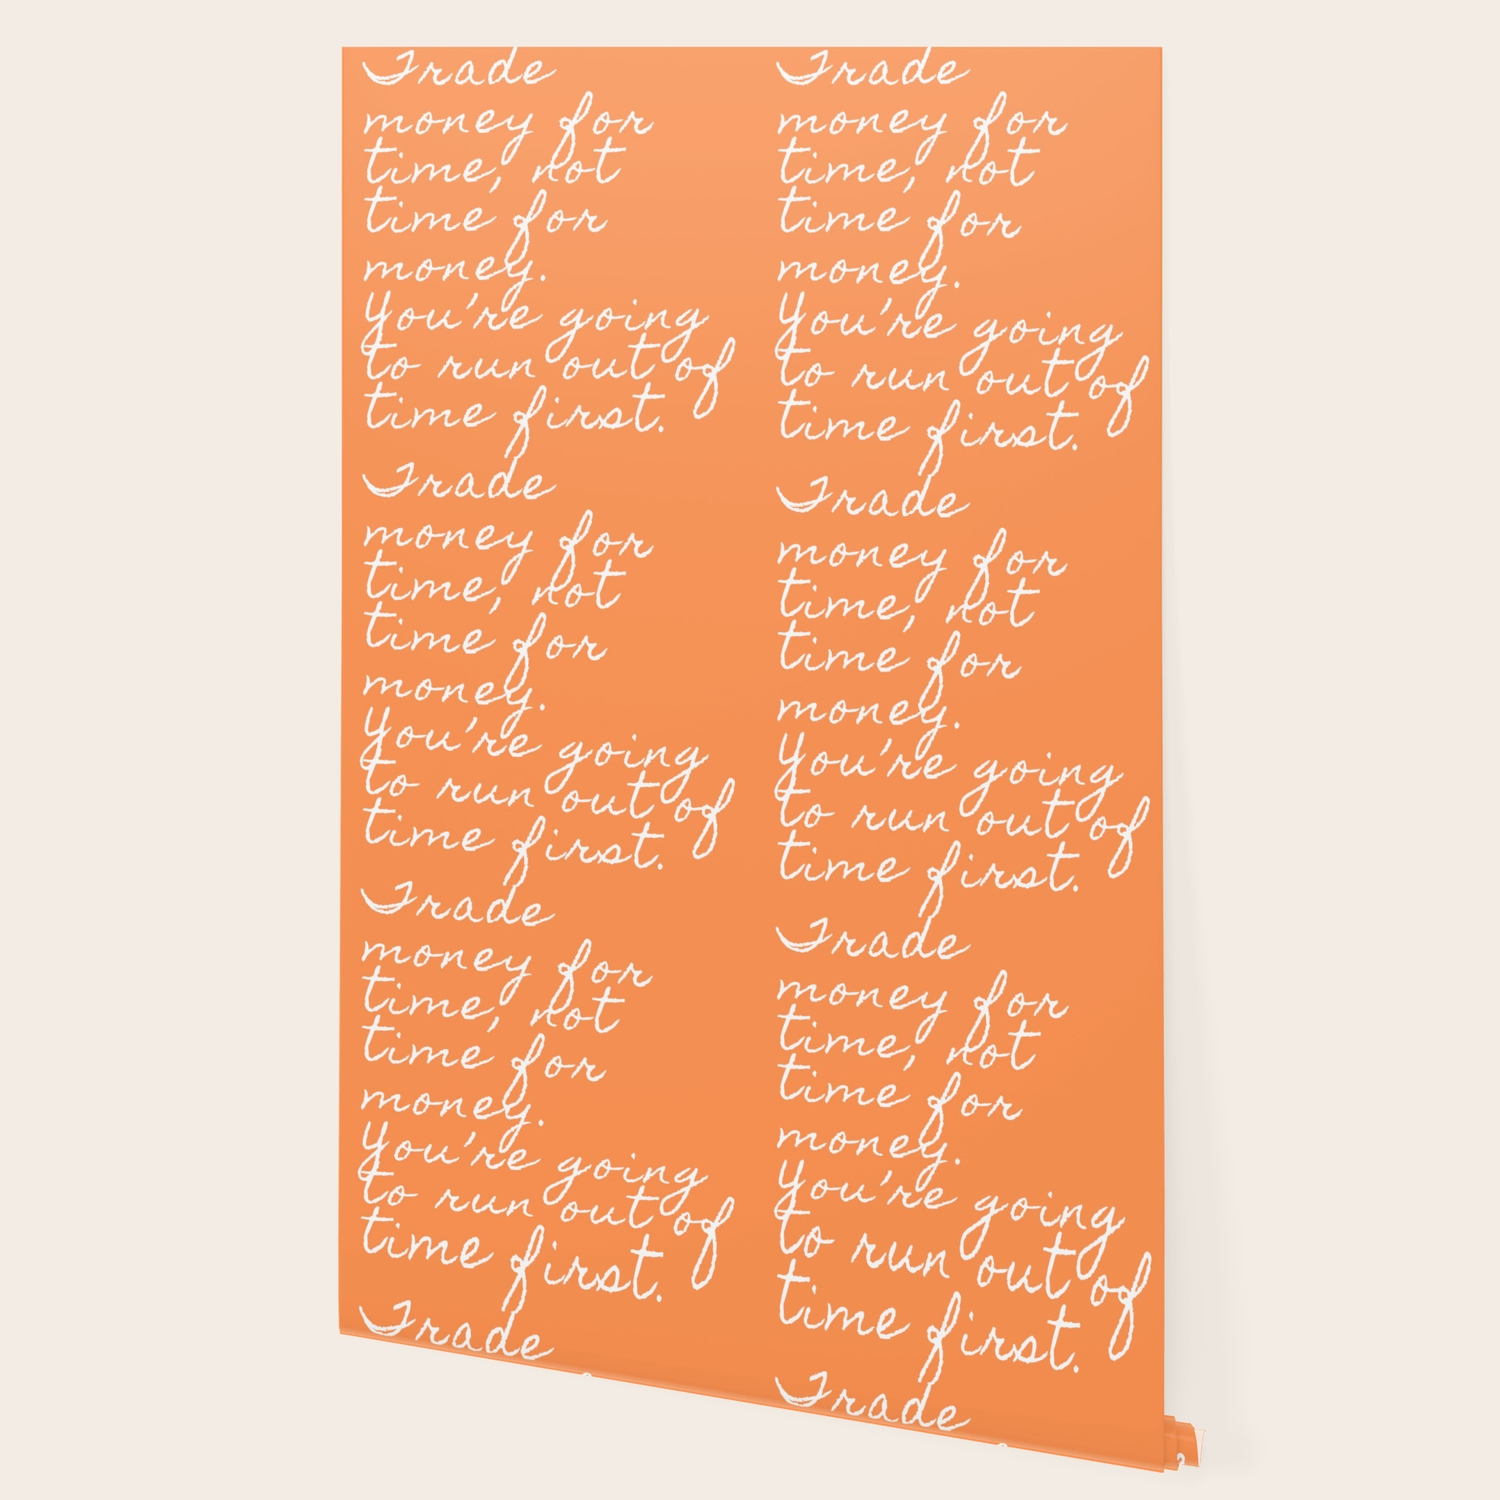 Trade
money for
time, not
time for
money.
You're going
to run out of
time first.
Trade
money for
time, not
time for
money.
You're going
to run out of
time first.
Trade
money for
time, not
time for
money.
You're going
to run out of
time first.
Trade
Trade
money for
time, not
time for
money.
You're going
to run out of
time first.
Trade
money for
time, not
time for
money.
You're going
to run out of
time first.
Trade
money for
time, not
time for
money.
You're going
to run out of
time first.
Trade